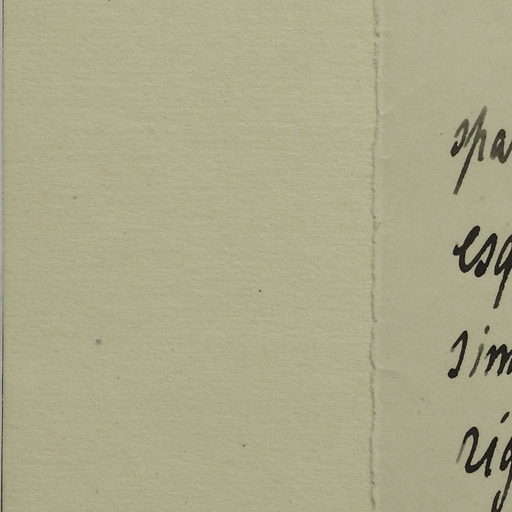 spa
esq
sim
rig